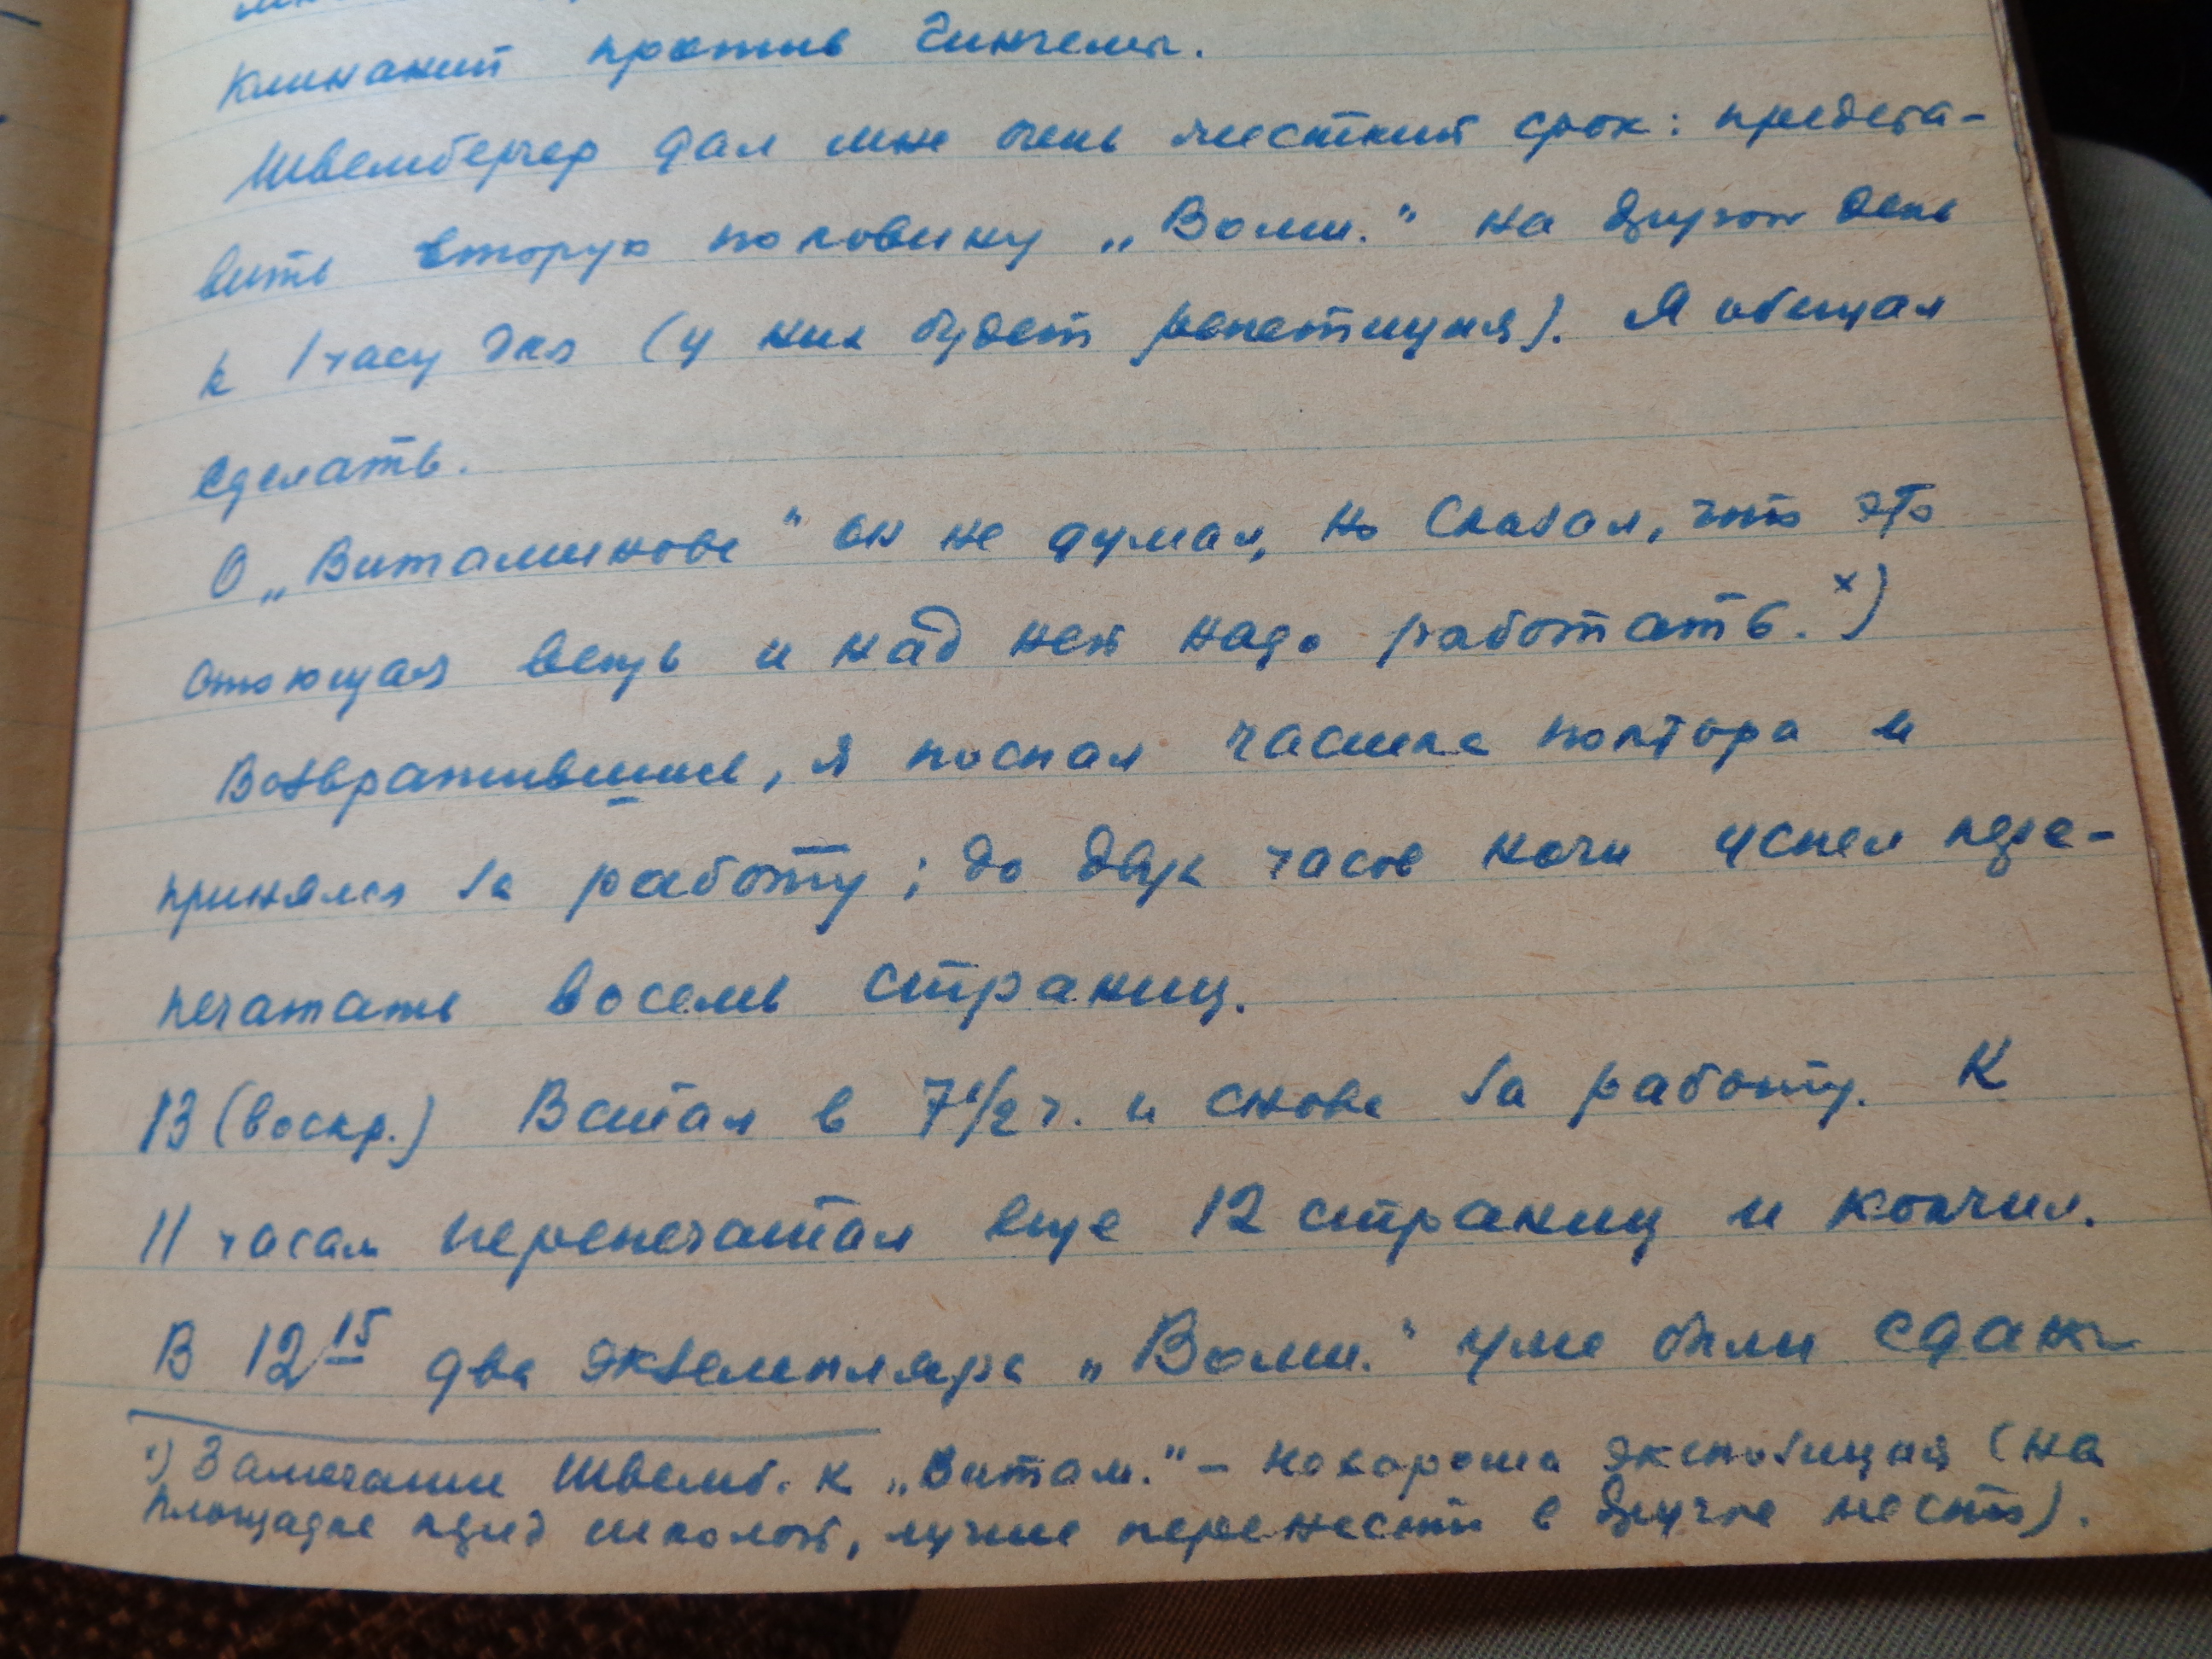 против Гингемы.
Швембергер дал мне очень жесткий срок: предста-
вить вторую половину „Волш." на другой день
к 1 часу дня (у них будет репетиция). Я обещал
сделать.
О „Витаминове" он не думал, но сказал, что это
стоющая вещь и над ней надо работать. х)
Возвратившись, я поспал часика полтора и
принялся за работу; до двух часов ночи успел пере-
печатать восемь страниц.
13 (воскр.) Встал в 7 1/2 ч. и снова за работу. К
11 часам перепечатал еще 12 страниц и кончил.
В 12 15 два экземпляра „Волш." уже были сданы
х) Замечание Швемб. к „Витам." – нехороша экспозиция (на
площадке перед школой, лучше перенести в другое место).